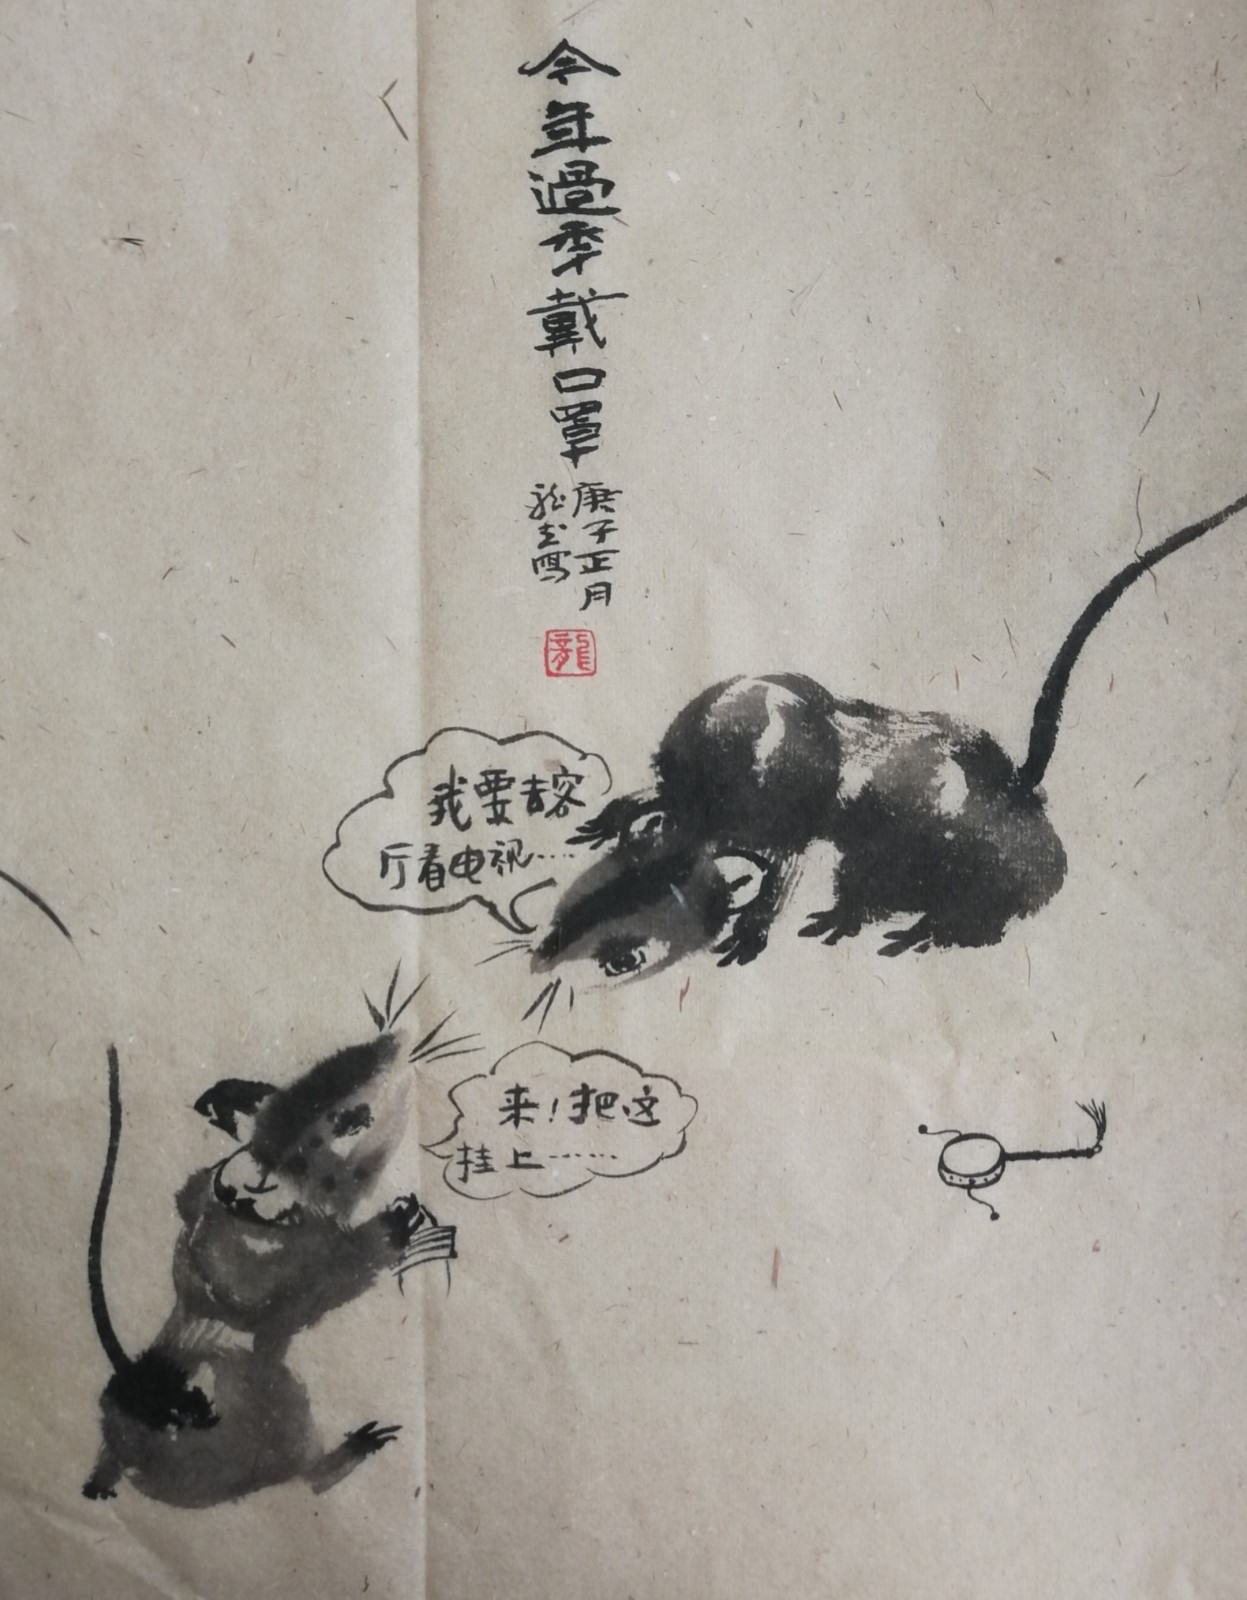 今年過季戴口罩
庚子正月
龍志寫
龍
我要去客
厅看电视……
来！把这
挂上……